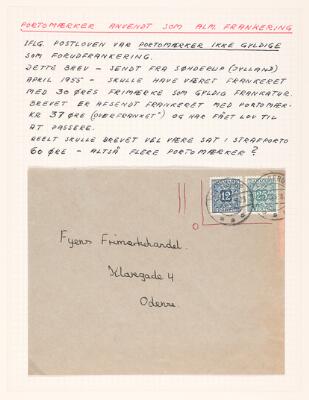 PORTOMÆRKER ANVENDT SOM ALM. FRANKERING
IFLG. POSTLOVEN VAR PORTOMÆRKER IKKE GYLDIGE
SOM FORUDFRANKERING.
DETTE BREV – SENDT FRA SØNDERUP (JYLLAND)
APRIL 1955 – SKULLE HAVE VÆRET FRANKERET
MED 30 ØRES FRIMÆRKE SOM GYLDIG FRANKATUR.
BREVET ER AFSENDT FRANKERET MED PORTOMÆR-
KR 37 ØRE ("OVERFRANKET") OG HAR FÅET LOV TIL
AT PASSERE.
REELT SKULLE BREVET VEL VÆRE SAT I STRAFPORTO
60 ØRE – ALTSÅ FLERE PORTOMÆRKER ?
12
25
Fyens Frimærkehandel.
Klaregade 4
Odense.